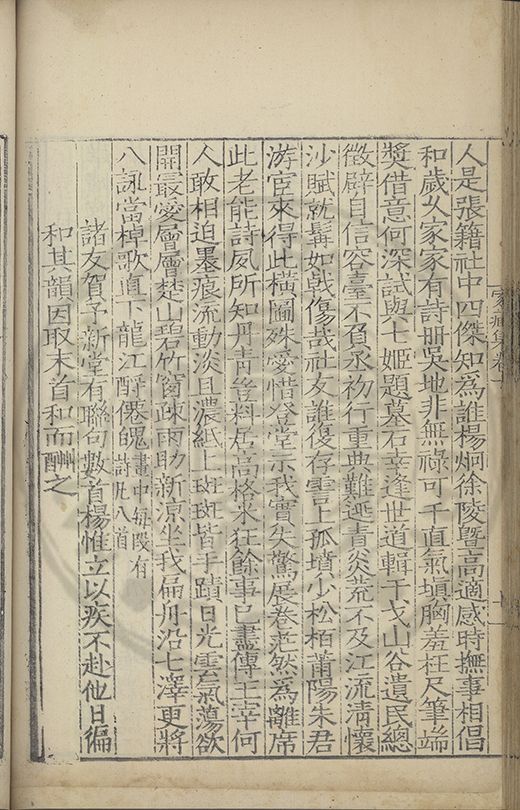 家藏集卷十
人是張籍社中四傑知為誰楊炯徐陵曁高適感時撫事相倡
和歲久家家有詩冊吳地非無祿可干直氣塡胸羞枉尺筆端
奬借意何深試與七姬題墓石幸逢世道輯干戈山谷遺民總
徵辟自信容臺不負丞初行重典難逃青炎荒不及江流清懷
沙賦就髯如戟傷哉社友誰復存雲上孤墳少松栢莆陽朱君
游宦來得此橫圖殊愛惜登堂示我實失驚展卷茫然為離席
此老能詩夙所知丹青豈料居高格米狂餘事已盡傳王宰何
人敢相迫墨痕流動淡且濃紙上斑斑皆手蹟日光雲氣蕩欲
開最愛層層楚山碧竹窗疎雨助新凉坐我扁舟沿七澤更將
八詠當棹歌直下龍江酹僊魄畫中每段有詩凡八首
諸友賀予新堂有聯句數首楊惟立以疾不赴他日徧
和其韻因取末首和而酬之